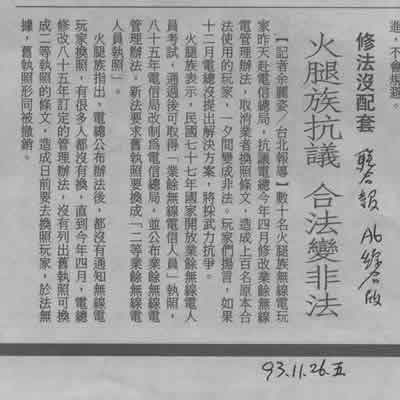 進，不會規避。
修法沒配套
聯合報 A6綜合版
火腿族抗議 合法變非法
【記者余麗姿／台北報導】數十名火腿族無線電玩
家昨天赴電信總局，抗議電總今年四月修改業餘無線
電管理辦法，取消業者換照條文，造成上百名原本合
法使用的玩家，一夕間變成非法。玩家們揚言，如果
十二月電總沒提出解決方案，將採武力抗爭。
火腿族表示，民國七十七年國家開放業餘無線電人
員考試，通過後可取得「業餘無線電信人員」執照，
八十五年電信局改制為電信總局，並公布業餘無線電
管理辦法，新法要求舊執照要換成「二等業餘無線電
人員執照」。
火腿族指出，電總公布辦法後，都沒有通知無線電
玩家換照，有很多人都沒有換，直到今年四月，電總
修改八十五年訂定的管理辦法，沒有列出舊執照可換
成二等執照的條文，造成日前要去換照玩家，於法無
據，舊執照形同被撤銷。
93.11.26.五